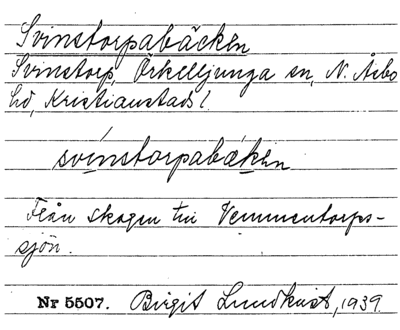 Svinstorpabäcken
Svinstorp, Örkelljunga sn, N. Åsbo
hd, Kristianstads l.
svinstorpabæken
Från skogen till Vemmentorps-
sjön.
Nr 5507. Birgit Lundkvist, 1939.